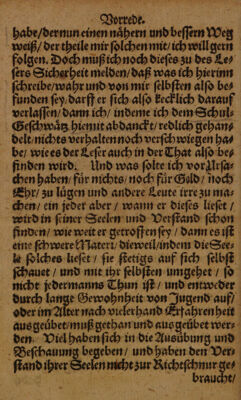 Vorrede.
habe/ der nun einen nähern und bessern Weg
weiß/ der theile mir solchen mit/ ich will gern
folgen. Doch muß ich noch dieses zu des Le-
sers Sicherheit melden/ daß was ich hierinn
schreibe/ wahr und von mir selbsten also be-
funden sey/ darff er sich also kecklich darauf
verlassen/ dann ich/ indeme ich dem Schul-
Geschwätz hiemit abdanckt/ redlich gehan-
delt/ nichts verhalten noch verschwiegen ha-
be/ wie es der Leser auch in der That also be-
finden wird. Und was solte ich vor Ursa-
chen haben/ für nichts/ noch für Gold/ noch
Ehr/ zu lügen und andere Leute irre zu ma-
chen/ ein jeder aber/ wann er dieses lieset/
wird in seiner Seelen und Verstand schon
finden/ wie weit er getroffen sey/ dann es ist
eine schwere Materi/ dieweil/ indem die See-
le solches lieset/ sie stetigs auf sich selbst
schauet/ und mit ihr selbsten umgehet/ so
nicht jedermanns Thun ist/ und entweder
durch lange Gewohnheit von Jugend auf/
oder im Alter nach vielerhand Erfahrenheit
ausgeübet/ muß gethan und ausgeübet wer-
den. Viel haben sich in die Ausübung und
Beschauung begeben/ und haben den Ver-
stand ihrer Seelen nicht zur Richtschnur ge-
braucht/